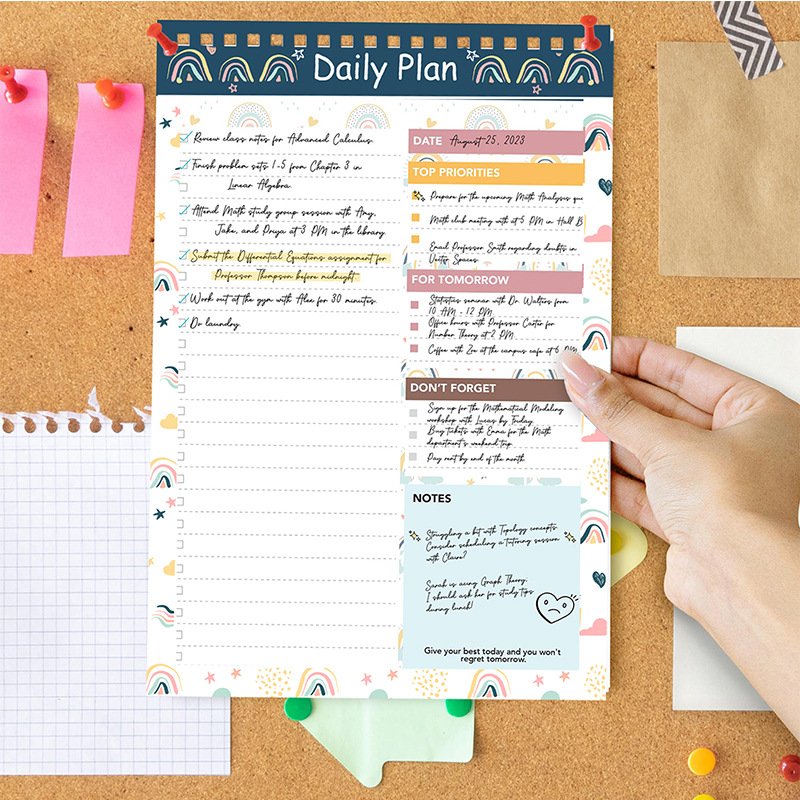 Daily Plan
Review class notes for Advanced Calculus.
Finish problem sets 1-5 from Chapter 3 in
Linear Algebra.
Attend Math study group session with Amy,
Jake, and Priya at 3 PM in the library.
Submit the Differential Equations assignment for
Professor Thompson before midnight.
Work out at the gym with Alex for 30 minutes.
Do laundry.
DATE August 25, 2023
TOP PRIORITIES
Prepare for the upcoming Math Analysis
Math club meeting with at 5 PM in Hall B
Email Professor Smith regarding doubts in
Vector Spaces.
FOR TOMORROW
Statistics seminar with Dr. Walters from
10 AM - 12 PM
Office hours with Professor Carter for
Number Theory at 2 PM
Coffee with Zoe at the campus cafe at 6 PM
DON'T FORGET
Sign up for the Mathematical Modeling
workshop with Lucas by Friday.
Buy tickets with Emma for the Math
department's weekend trip.
Pay rent by end of the month
NOTES
Struggling a bit with Topology concepts.
Consider scheduling a tutoring session
with Claire?
Sarah is acing Graph Theory.
I should ask her for study tips
during lunch!
Give your best today and you won't
regret tomorrow.